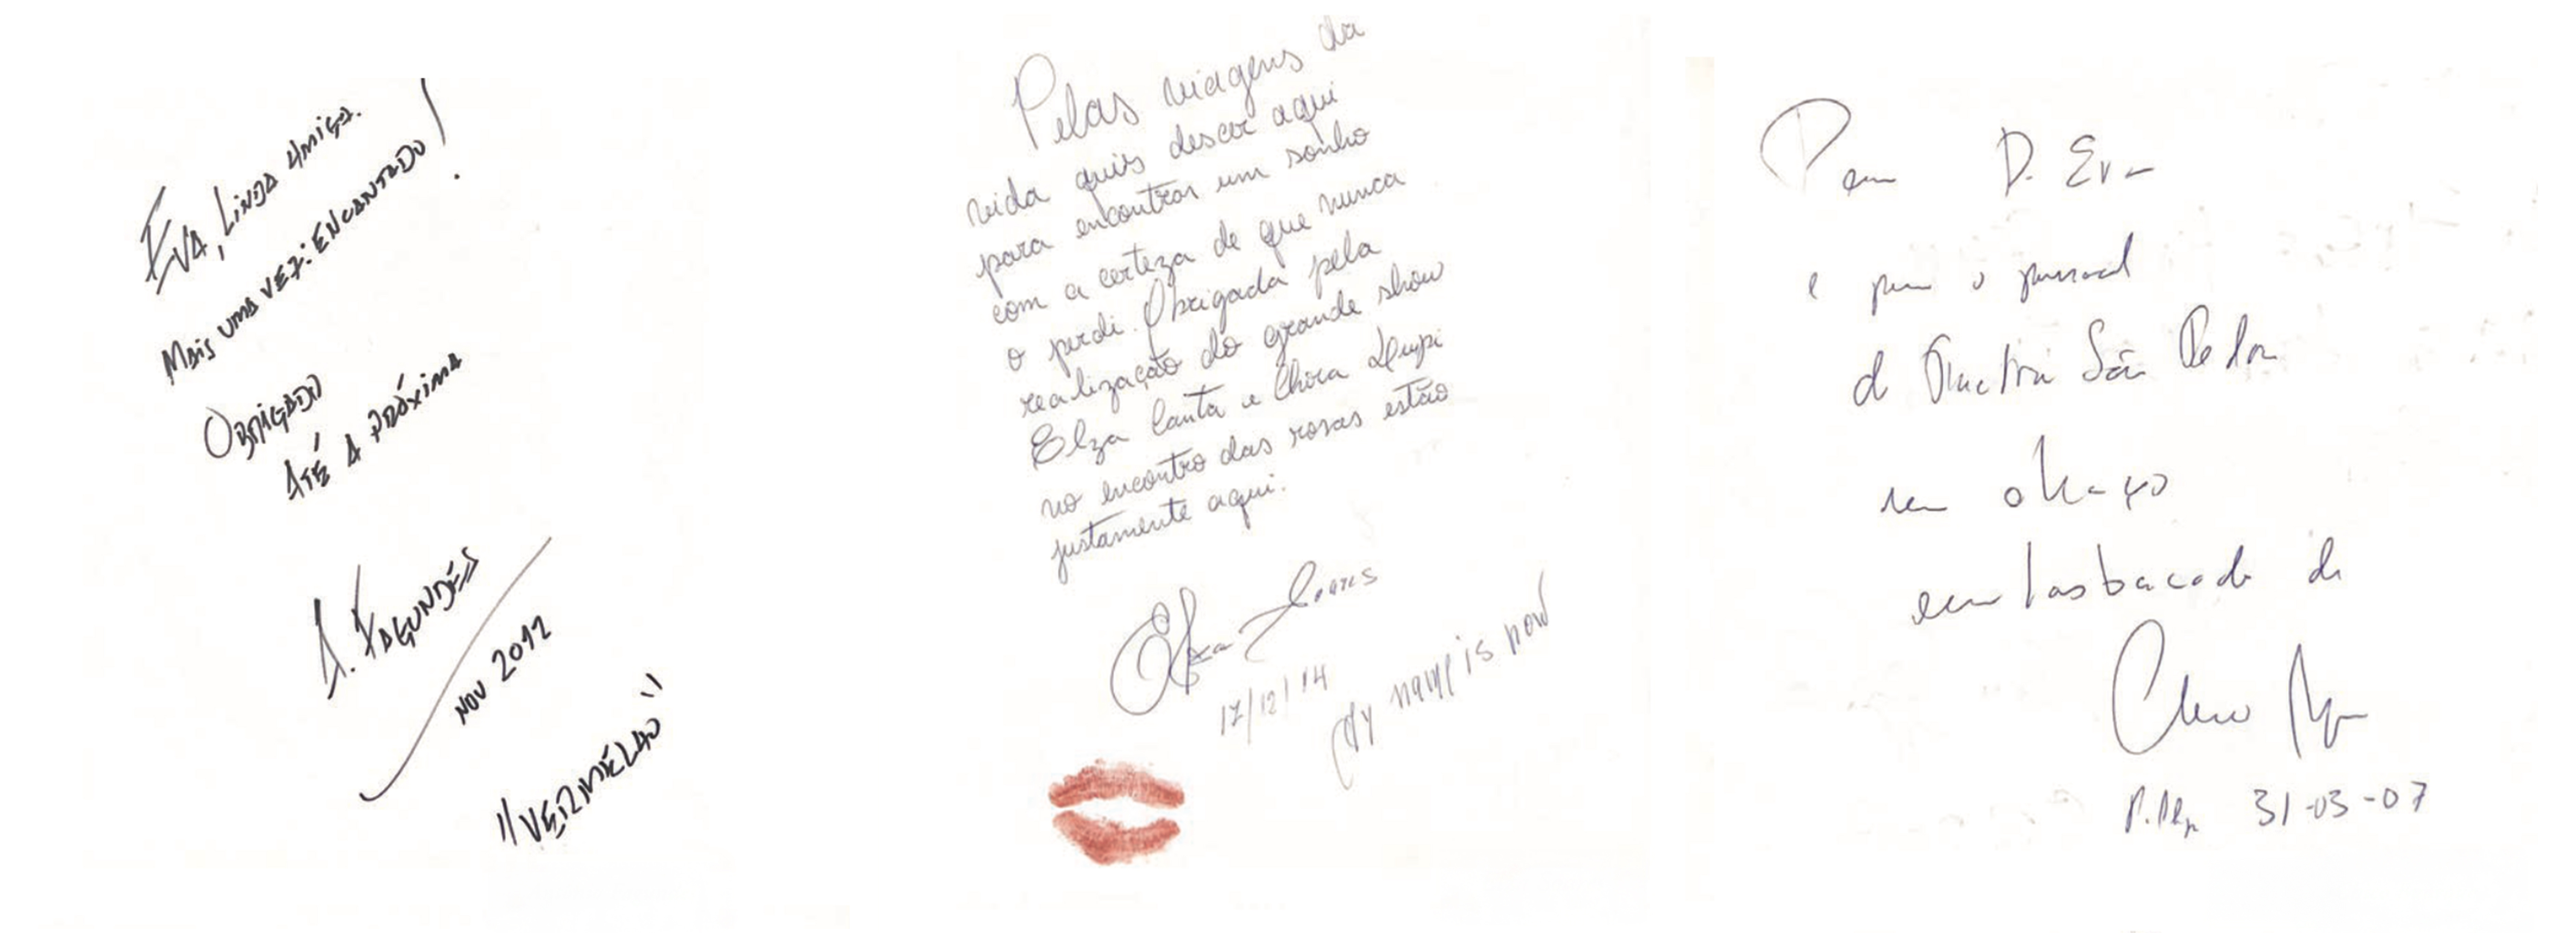 EVA, LINDA AMIGA.
MAIS UMA VEZ: ENCANTADO!
OBRIGADO
ATÉ A PRÓXIMA
A. FAGUNDES
NOV 2012
"VERMELHO"
Pelas viagens da
vida quis descer aqui
para encontrar um sonho
com a certeza de que nunca
o perdi. Obrigada pela
realização do grande show
Elza Canta e Chora Lupi
no encontro das rosas estão
justamente aqui.
Elza Soares
17/12/14
My name is now
Para D. Eva
e para o pessoal
do Theatro São Pedro
um abraço
de
31-03-07